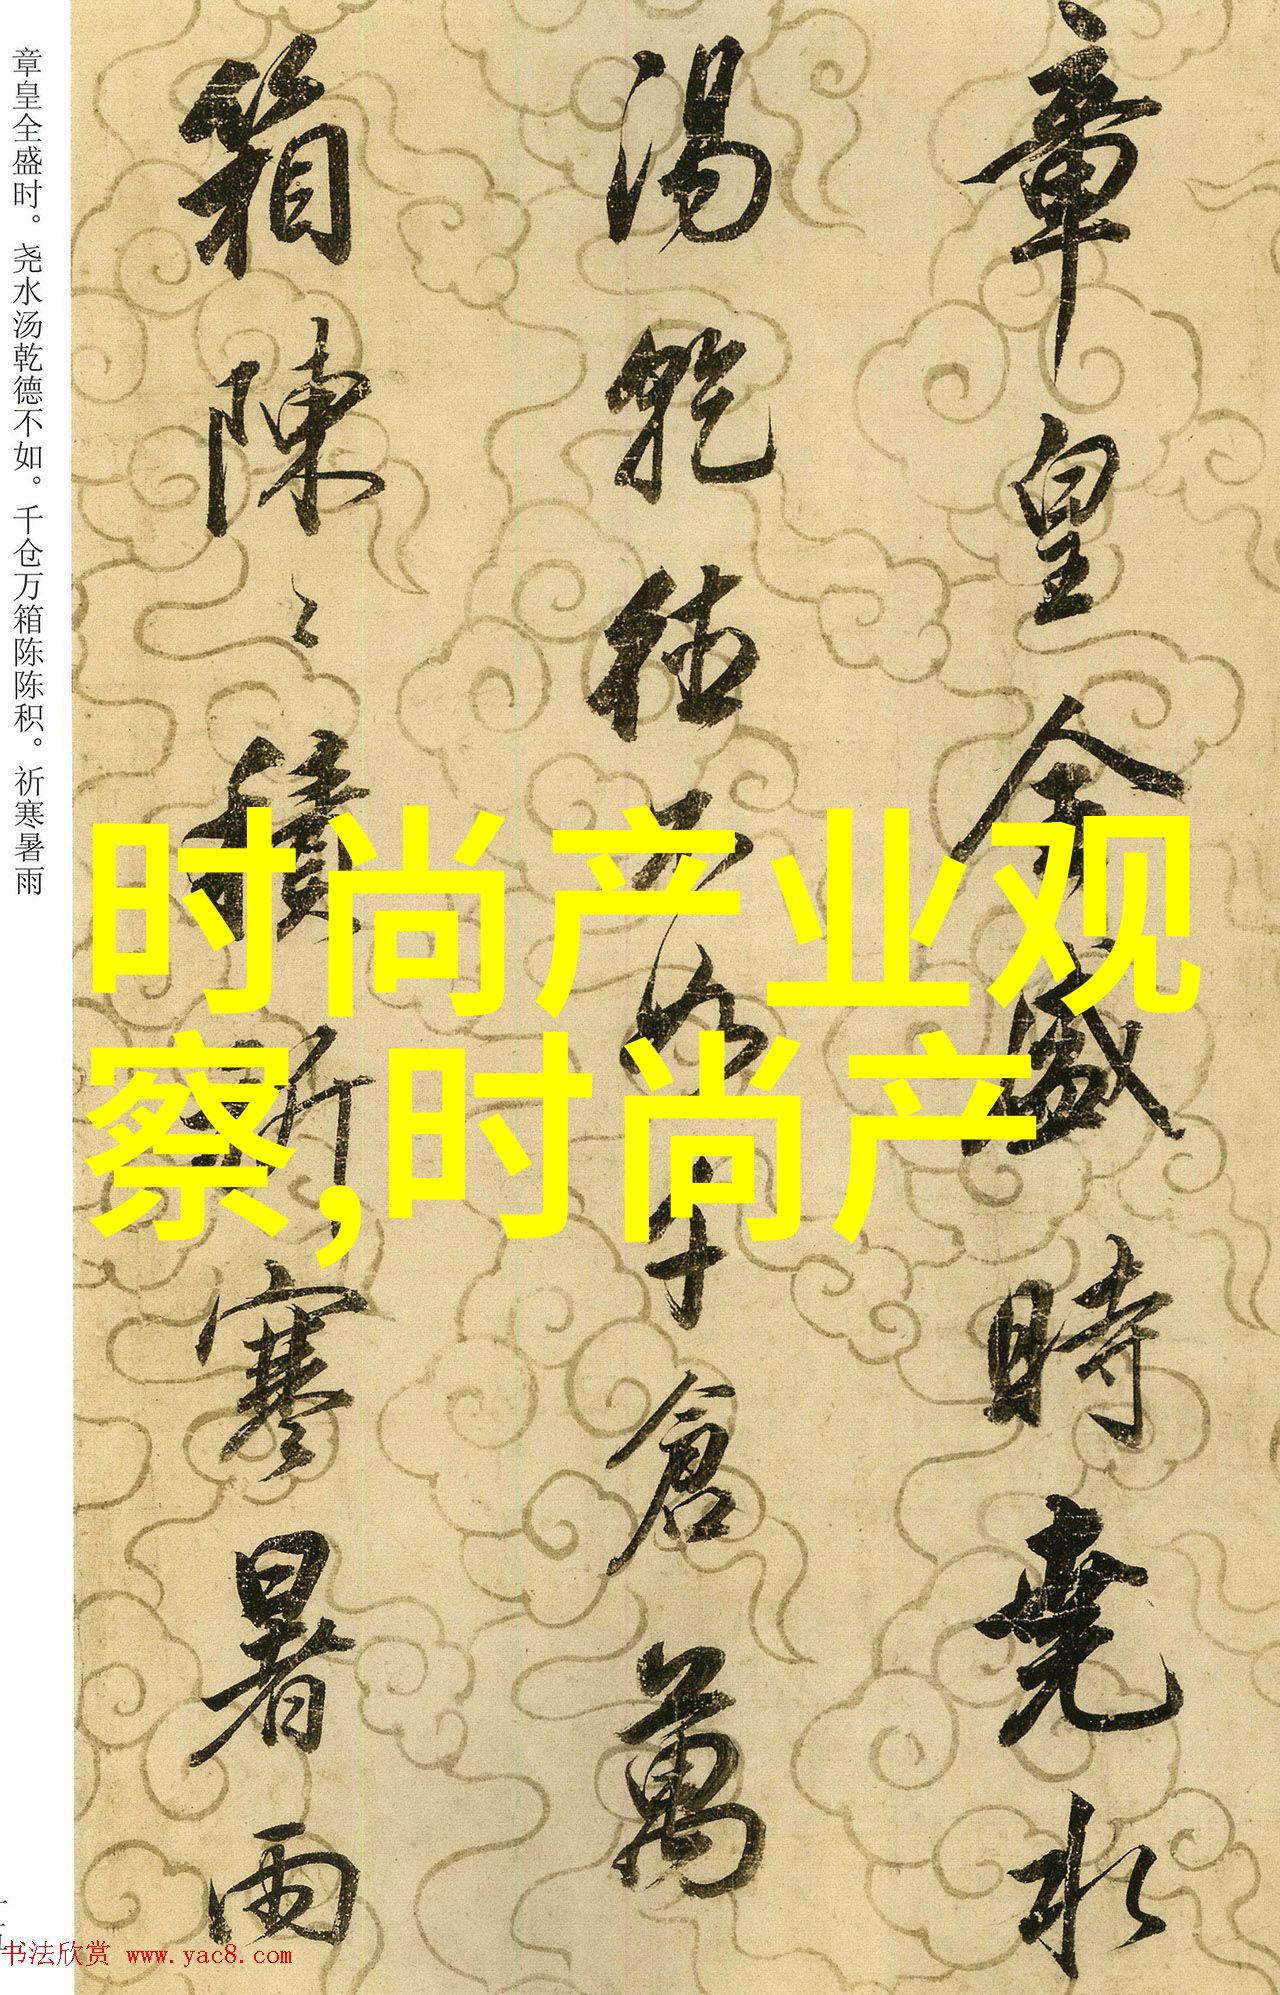 章皇全盛時堯水
湯乾德不如千倉萬
箱陳〻積祈寒暑雨
章皇全盛时。尧水汤乾德不如。千仓万箱陈陈积。祈寒暑雨
时尚产业观
察,时尚产
书法欣赏 www.yac8.com